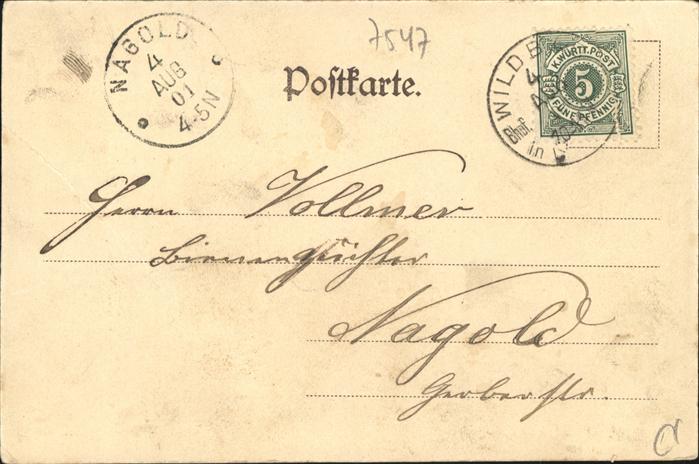 7547
NAGOLD
4
AUG
01
4-5N
Postkarte.
WILDB
4
Bhf.
K.WÜRTT.POST
5
FÜNF PFENNIG
Herrn Vollmer
Bienenzüchter
Nagold
Gerberstr.